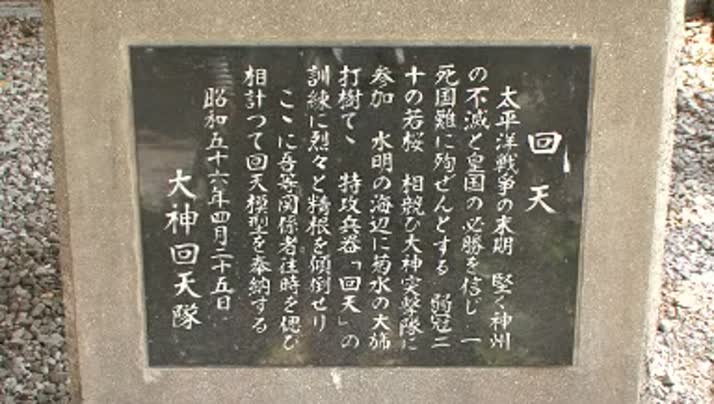 回天
太平洋戦争の末期　堅く神州
の不滅と皇国の必勝を信じ　一
死国難に殉ぜんとする　弱冠二
十の若桜　相競ひ大神突撃隊に
参加　水明の海辺に菊水の大旆
打樹てゝ　特攻兵器「回天」の
訓練に烈々と精根を傾倒せり
ここに吾等関係者往時を偲び
相計つて回天模型を奉納する
昭和五十六年四月二十五日
大神回天隊